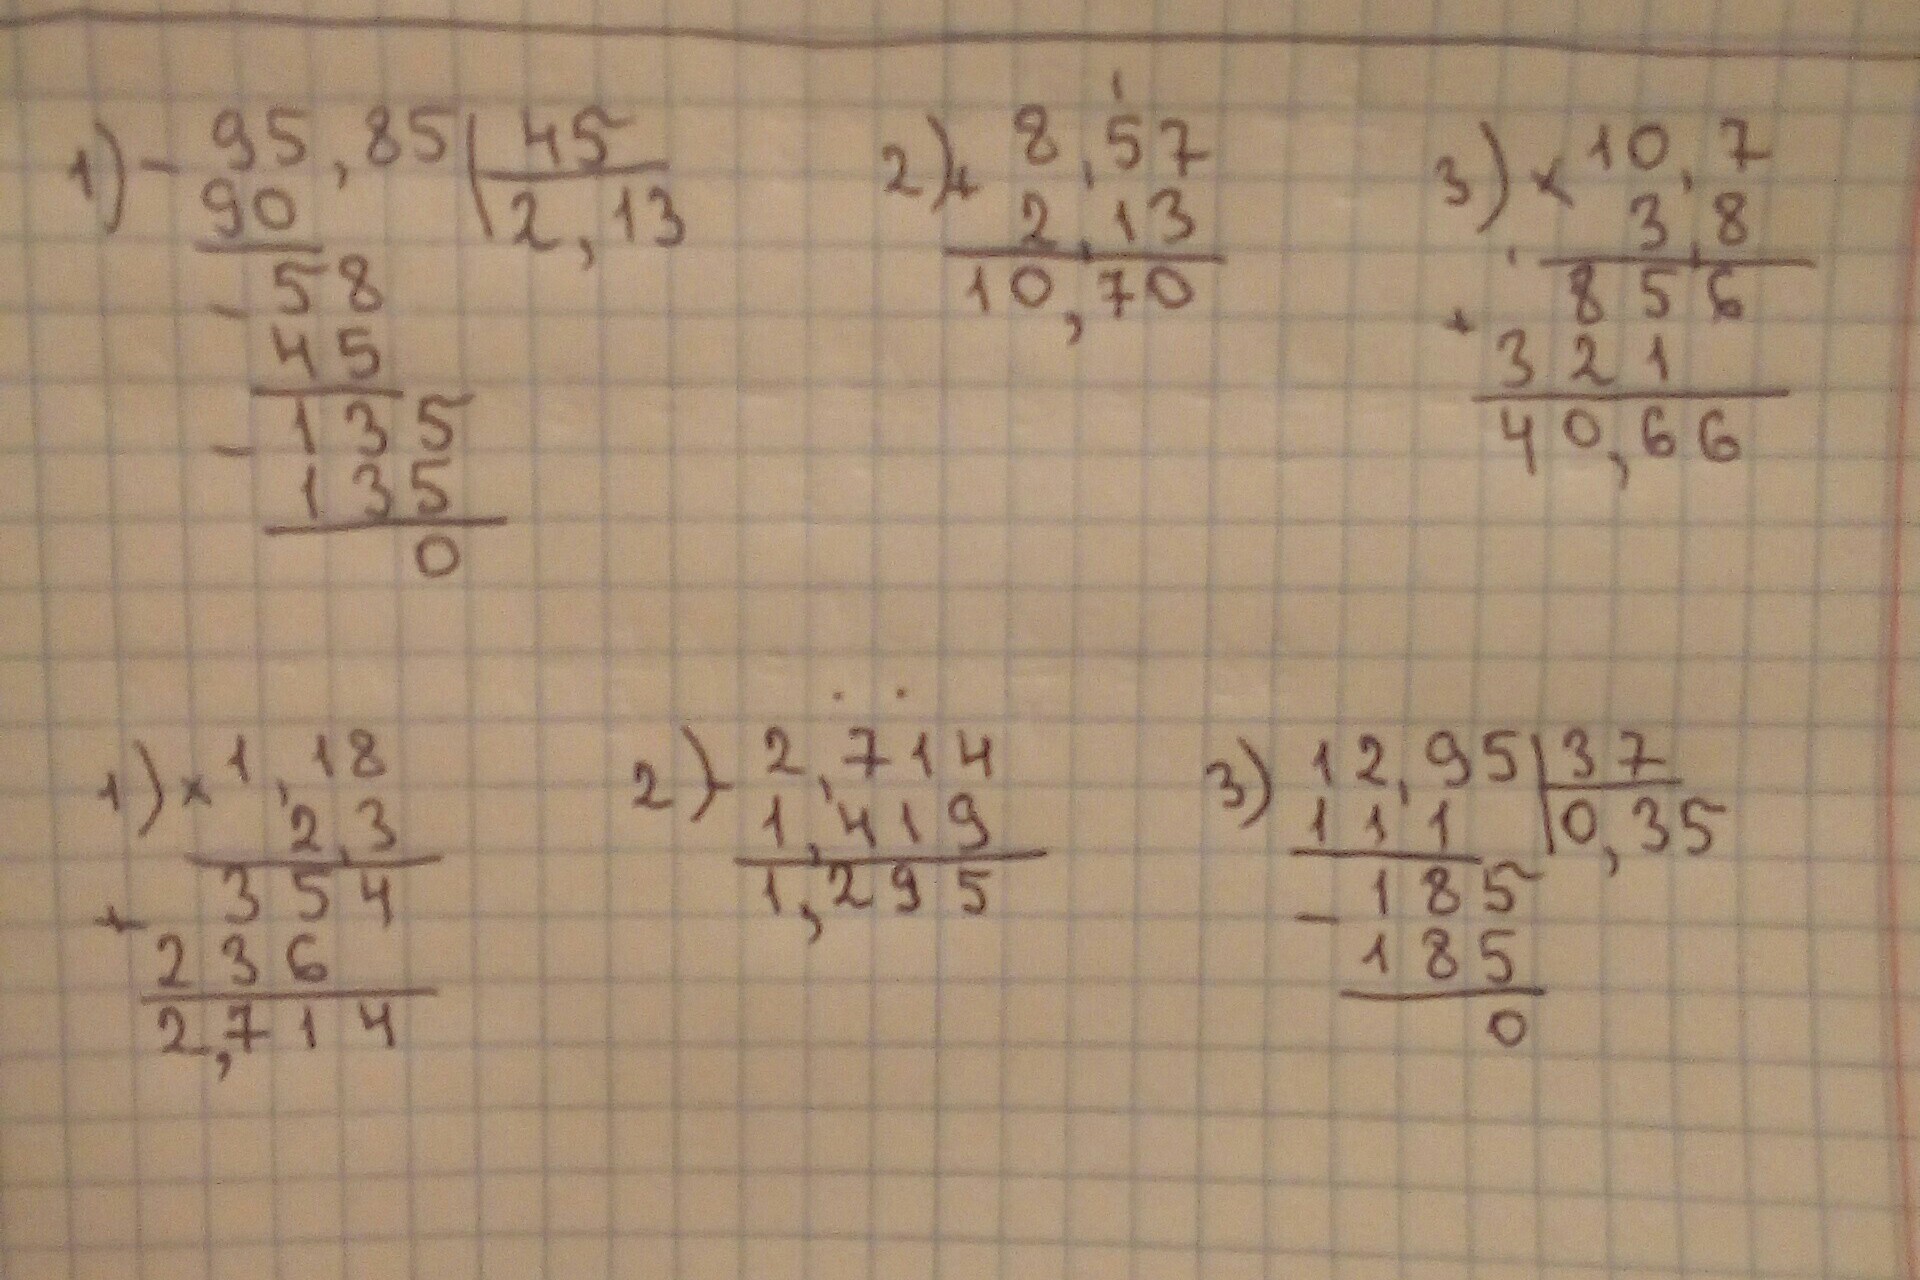 1) - 95,85 | 45
90 | 2,13
- 58
45
- 135
135
0
2) + 8,57
2,13
10,70
1
3) × 10,7
3,8
856
+ 321
40,66
1) × 1,18
2,3
354
+ 236
2,714
2) - 2,714
1,419
1,295
3) 12,95 | 37
111 | 0,35
- 185
185
0